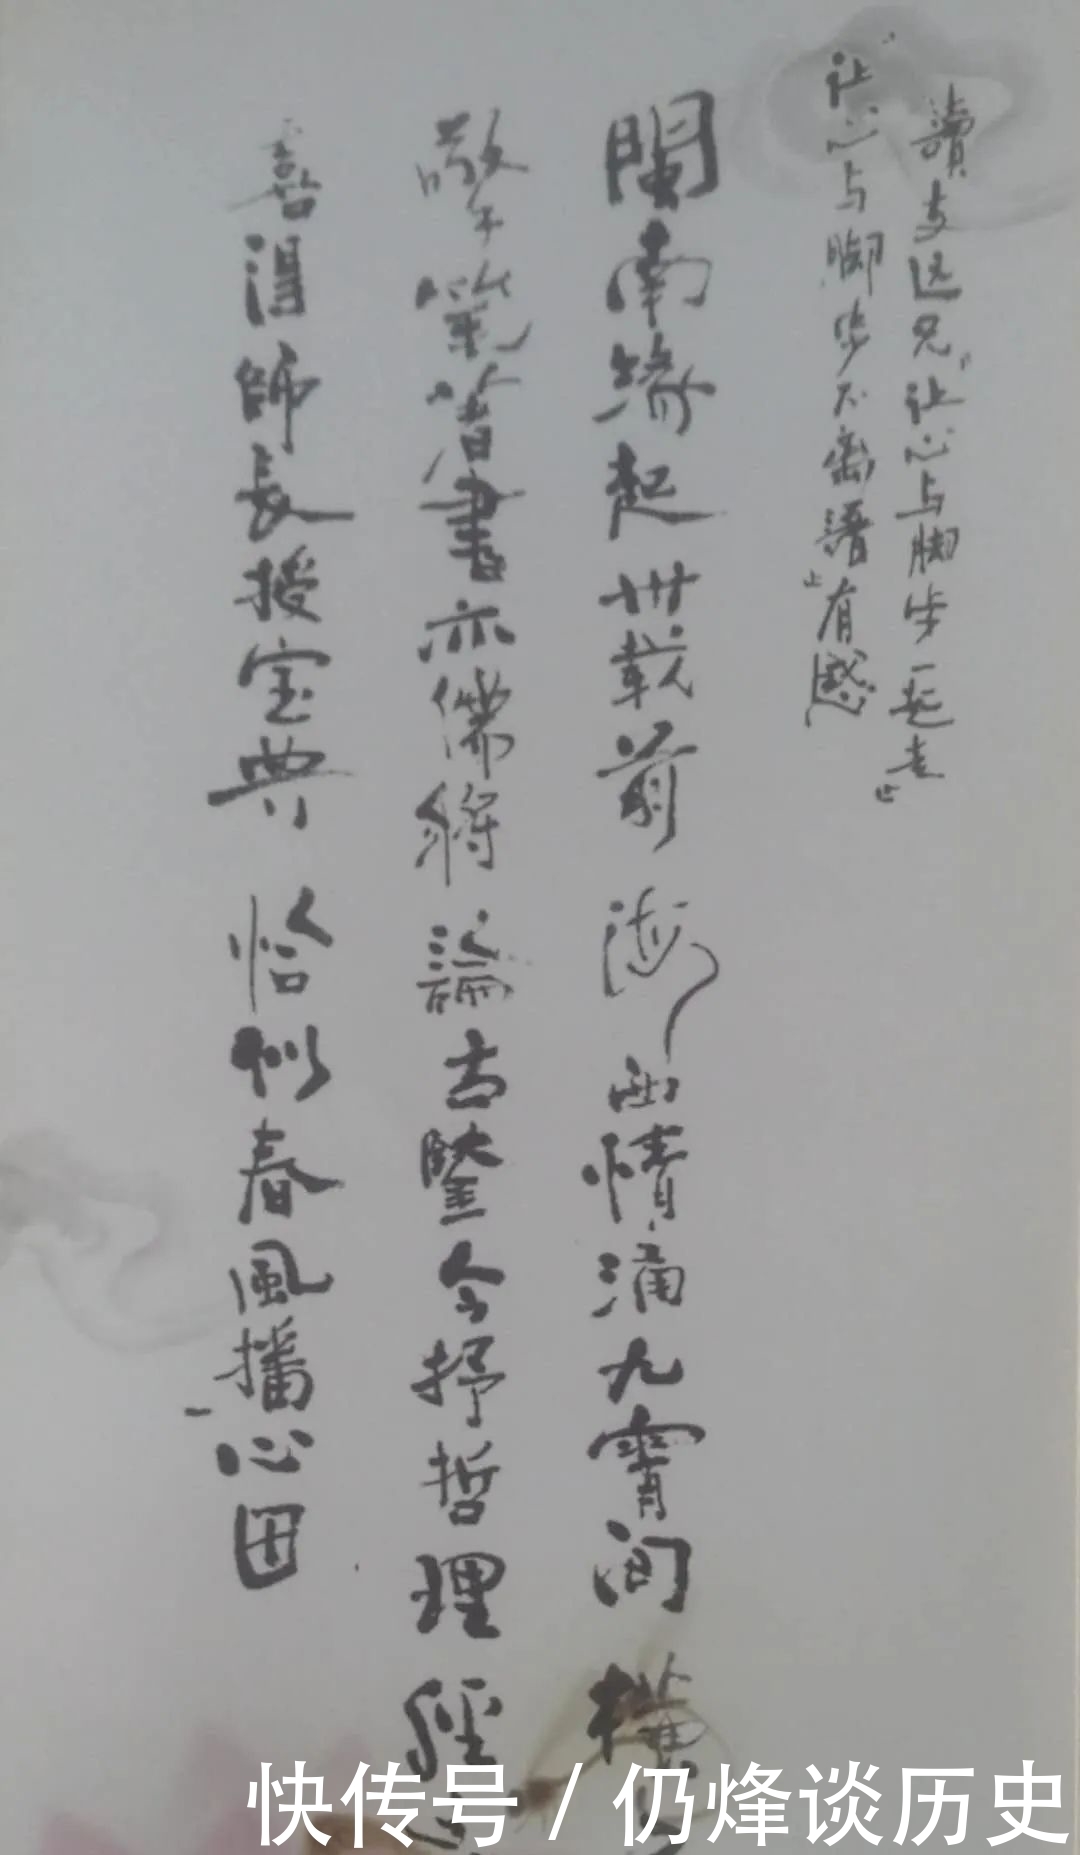 讀兄"让心与脚步一起走"
"让心与脚步不离"有感
閩南緣起卅載前 海西情涌九霄间 横
擎筆著書亦儒將 論古鑒今抒哲理 經
喜得師長授宝典 恰似春風播心田
快传号 / 仍烽谈历史